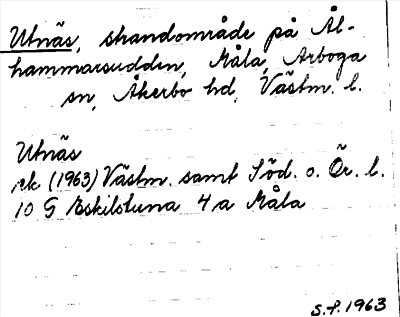 Utnäs, strandområde på Ål-
hammarsudden, Måla, Arboga
sn, Åkerbo hd, Västm. l.
Utnäs
ek (1963) Västm. samt Söd. o. Ör. l.
10 G Eskilstuna 4 a Måla
S.F. 1963